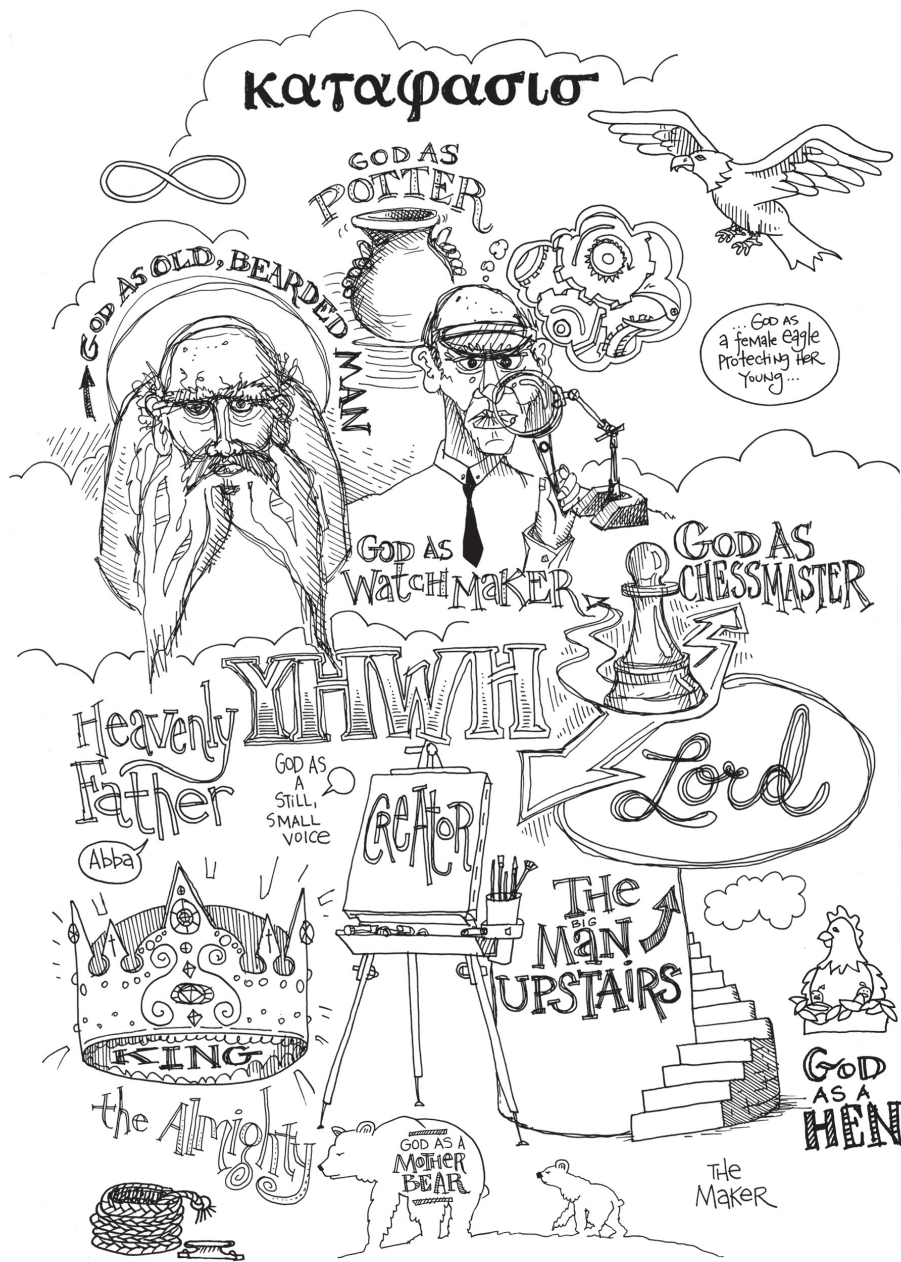 καταφασισ
GOD AS
POTTER
GOD AS OLD, BEARDED MAN
...GOD AS
a female eagle
Protecting HER
YOUNG...
GOD AS
WatchMaKER
GOD AS
CHESSMASTER
YHWH
Heavenly
Father
Abba
GOD AS
A
STILL,
SMALL
VOICE
CREATOR
Lord
THE
BIG
MaN
UPSTAiRS
KING
the Almighty
GOD AS A
MOTHER
BEAR
GOD
AS A
HEN
THE
MaKER